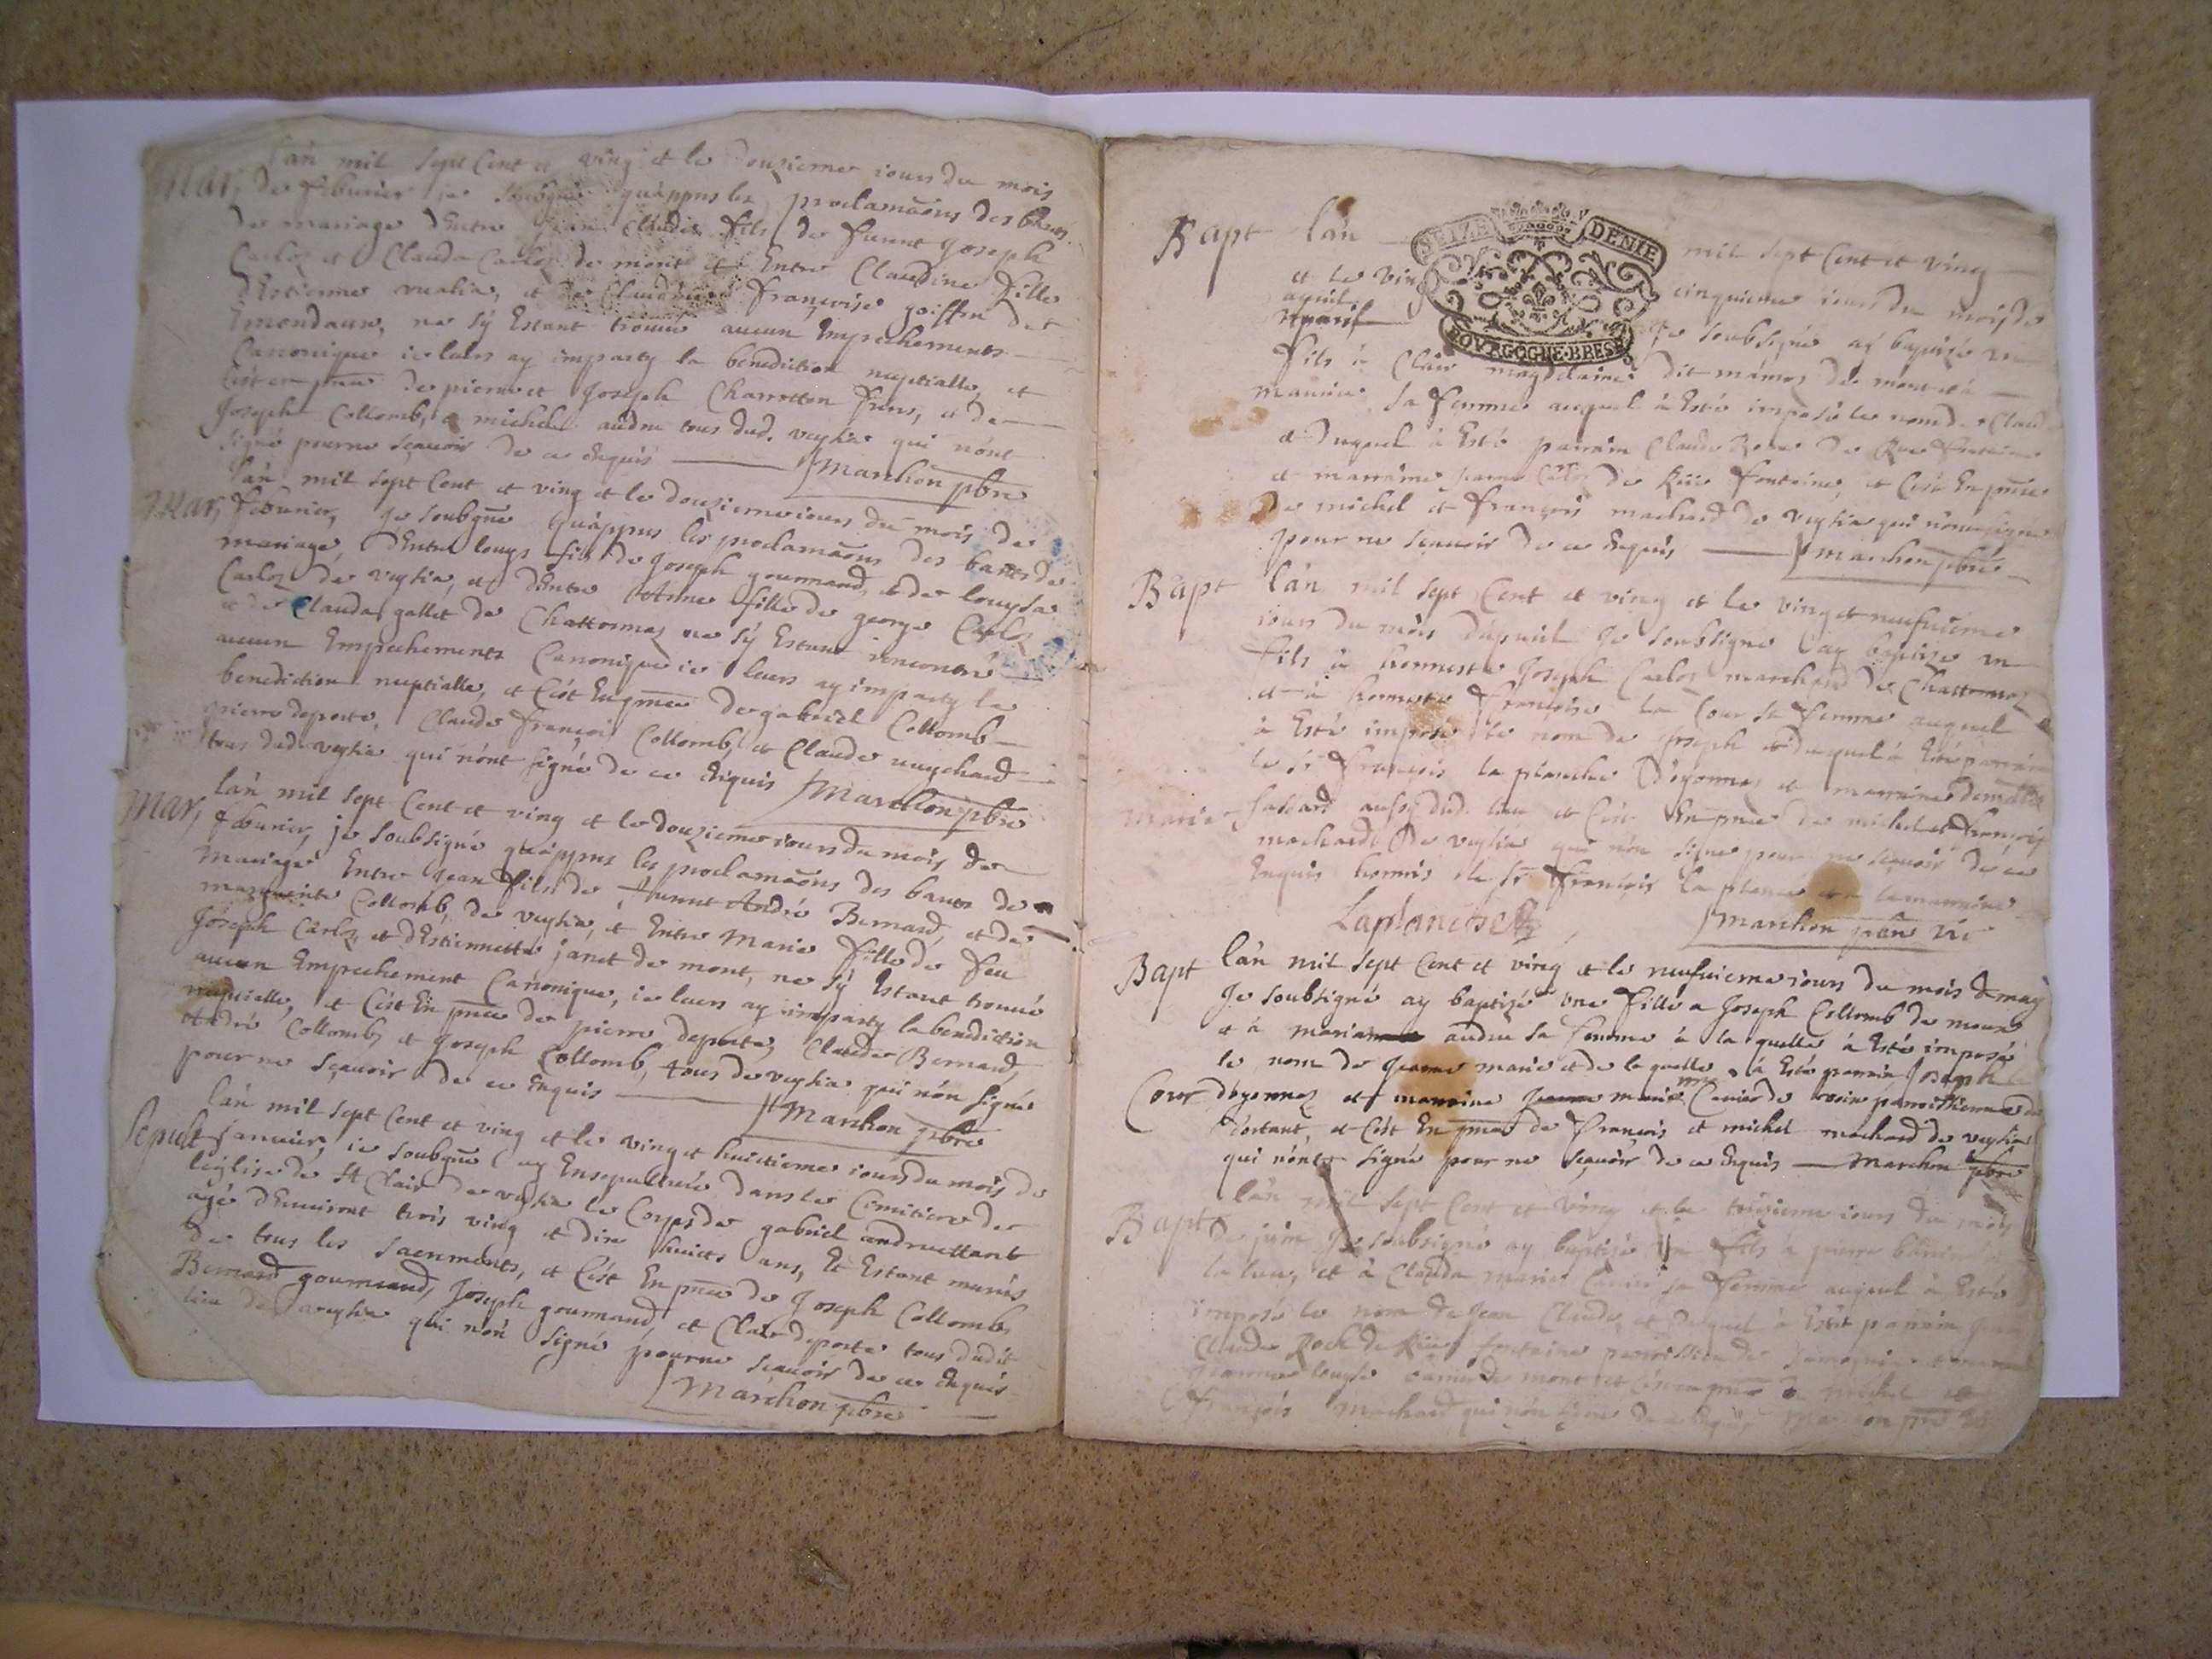 Mar, l'an mil sept Cent et ving et le douzieme iours du mois
de febvrier je soubgné qu'appres les proclamaōns des bancs
de mariage d'Entre Claude fils de funnt Joseph
Carloz et Clauda Carloz de mont et Entre Claudine fille
d'Estienne et de françoise goiffon det
Emondaux, ne sÿ Estant trouvé aucun Empechements
Canonique ie leurs ay imparty la benediction nuptialle, et
C'ést en pnce de pierre et Joseph Charretton freres, et de
Joseph Collomb, et michel andre tous dud. veysia qui n'ónt
signé pour ne sçavoir de ce Enquis Marchon pbre
Mar, l'an mil sept Cent et ving et le douzieme iours du mois de
febvrier, Je soubgné Qu'appres les proclamaōns des bancs de
mariage, d'Entre louys fils de Joseph gourmand, et de louysa
Carloz de veysia, et d'Entre Anne fille de george Carloz
et de Clauda gallet de Chattonnaz ne sÿ Estant rencontré
aucun Empechements Canonique ie leurs ay imparty la
benediction nuptialle, et C'ést En pnce de gabriel Collomb
pierre deporte, Claude françois Collomb et Claude
tous dud. veysia qui n'ónt signé de ce Enquis Marchon pbre
Mar, l'an mil sept Cent et ving et le douzieme iours du mois de
febvrier, je soubsigné qu'appres les proclamaōns des bancs de
Mariage Entre Jean fils de funnt André Bernard, et de
marguerite Collomb, de veysia, et Entre Marie fille de feu
Joseph Carloz, et d'Estiennette janet de mont, ne sÿ Estant trouvé
aucun Empechement Canonique, ie leurs ay imparty la benediction
nuptialle, et C'ést En pnce de pierre deporte, Claude Bernard,
André Collomb, et Joseph Collomb, tous de veysia qui n'ón signé
pour ne sçavoir de ce Enquis Marchon pbre
Sepult l'an mil sept Cent et ving et le ving et huictieme iours du mois de
janvier, ie soubgné ay Ensepulturé dans le Cimitiere de
l'église de St Clair de veysia le Corps de gabriel andruettant
agé d'Environt trois ving et dix huicts ans, Et Estant munis
de tous les sacrements, et C'ést En pnce de Joseph Collomb,
Bernard gourmand, Joseph gourmand, et Clair deporte tous dudit
lieu de veysia qui n'ón signé pour ne sçavoir de ce Enquis
Marchon pbre
SEIZE DENIE
BOVRGOGNE·BRESSE
Bapt l'an mil sept Cent et ving
et le ving cinquieme iours du mois de
apuil
Je soubsigné aÿ baptizé un
fils à Clair magdelaine dit mamoz de mont et à
sa femme auquel à Esté imposé le nom de Claude
et duquel à Esté parrain Claude de Rue fontaine
et marraine de Rüe fontaine, et C'ést En pnce
de michel et françois machard de veysia qui n'ónt signe
pour ne sçavoir de ce Enquis Marchon pbre
Bapt l'an mil sept Cent et ving et le ving et neufvieme
iours du mois d'apvuil Je soubsigné ay baptizé un
fils à honneste Joseph Carloz marchand de Chattonnaz
et à honneste françoise la Cour sa femme auquel
à Esté imposé le nom de Joseph et duquel à Esté parrain
le sr françois la planche d'oyonnaz et marraine
Marie aussy dud. lieu et C'ést En pnce de michel et françois
machard de veysia qui n'ón signe pour ne sçavoir de ce
Enquis hormis le sr françois la planche
Laplanche Marchon pbre vic
Bapt l'an mil sept Cent et ving et le neufvieme iours du mois de may
Je soubsigné ay baptizé une fille a Joseph Collomb de mont
et à maria andre sa femme à la quelle à Esté imposé
le nom de Jeanne marie et de la quelle à Esté parrain Joseph la
Cour d'oyonnaz et marraine Jeanne marie Carrier de paroissienne de
d'ortant, et C'ést En pnce de françois et michel machard de veysia
qui n'ónt signé pour ne sçavoir de ce Enquis Marchon pbre
Bapt l'an mil sept Cent et ving et le treizieme iours du mois
de juin Je soubsigné ay baptizé un fils à pierre
et à Clauda marie sa femme auquel à Esté
imposé le nom de Jean Claude, et duquel à Esté parrain
Claude Roch de Rüe fontaine
Jeanne louyse de mont et C'ést en pnce de michel et
françois Machard qui n'ón signé de ce Enquis